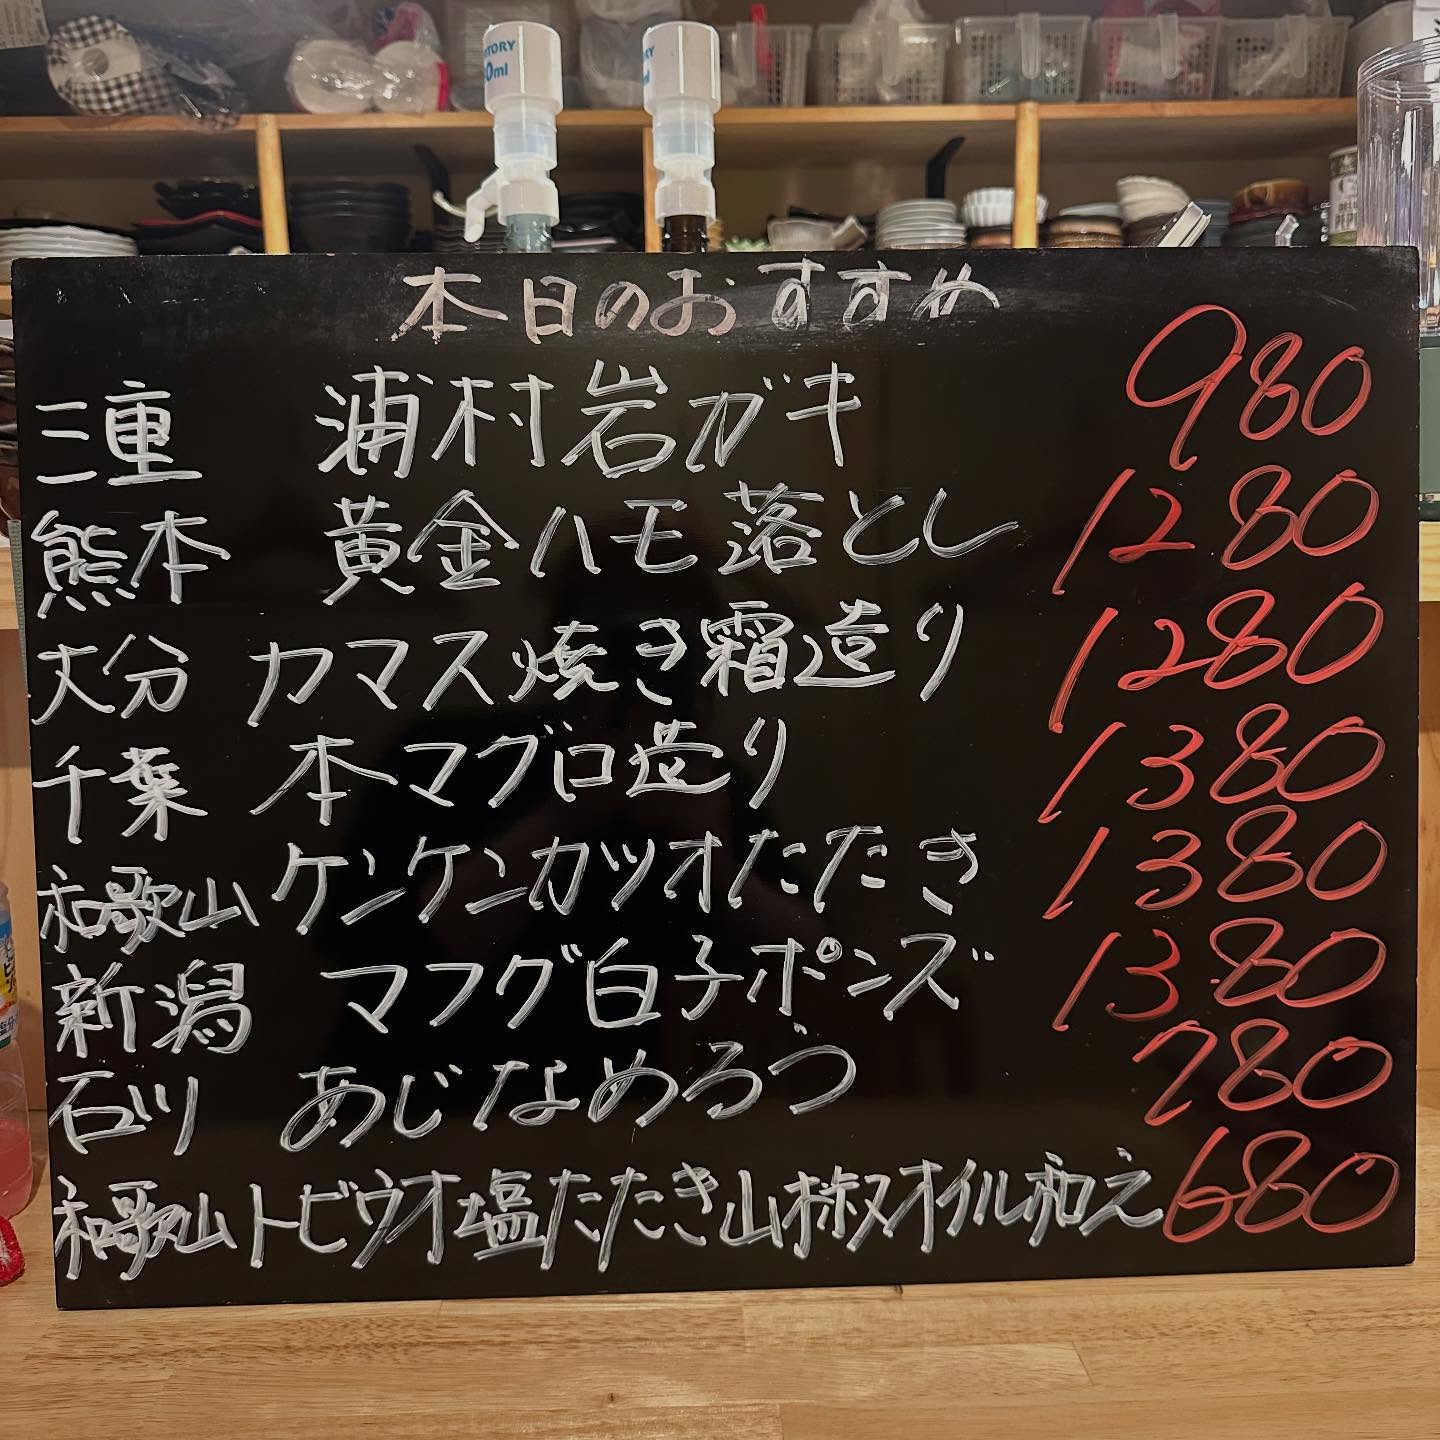 本日のおすすめ
三重 浦村岩ガキ 980
熊本 黄金ハモ落とし 1280
大分 カマス焼き霜造り 1280
千葉 本マグロ造り 1380
和歌山 ケンケンカツオたたき 1380
新潟 マフグ白子ポンズ 1380
石川 あじなめろう 780
和歌山 トビウオ塩たたき山椒オイル和え 680